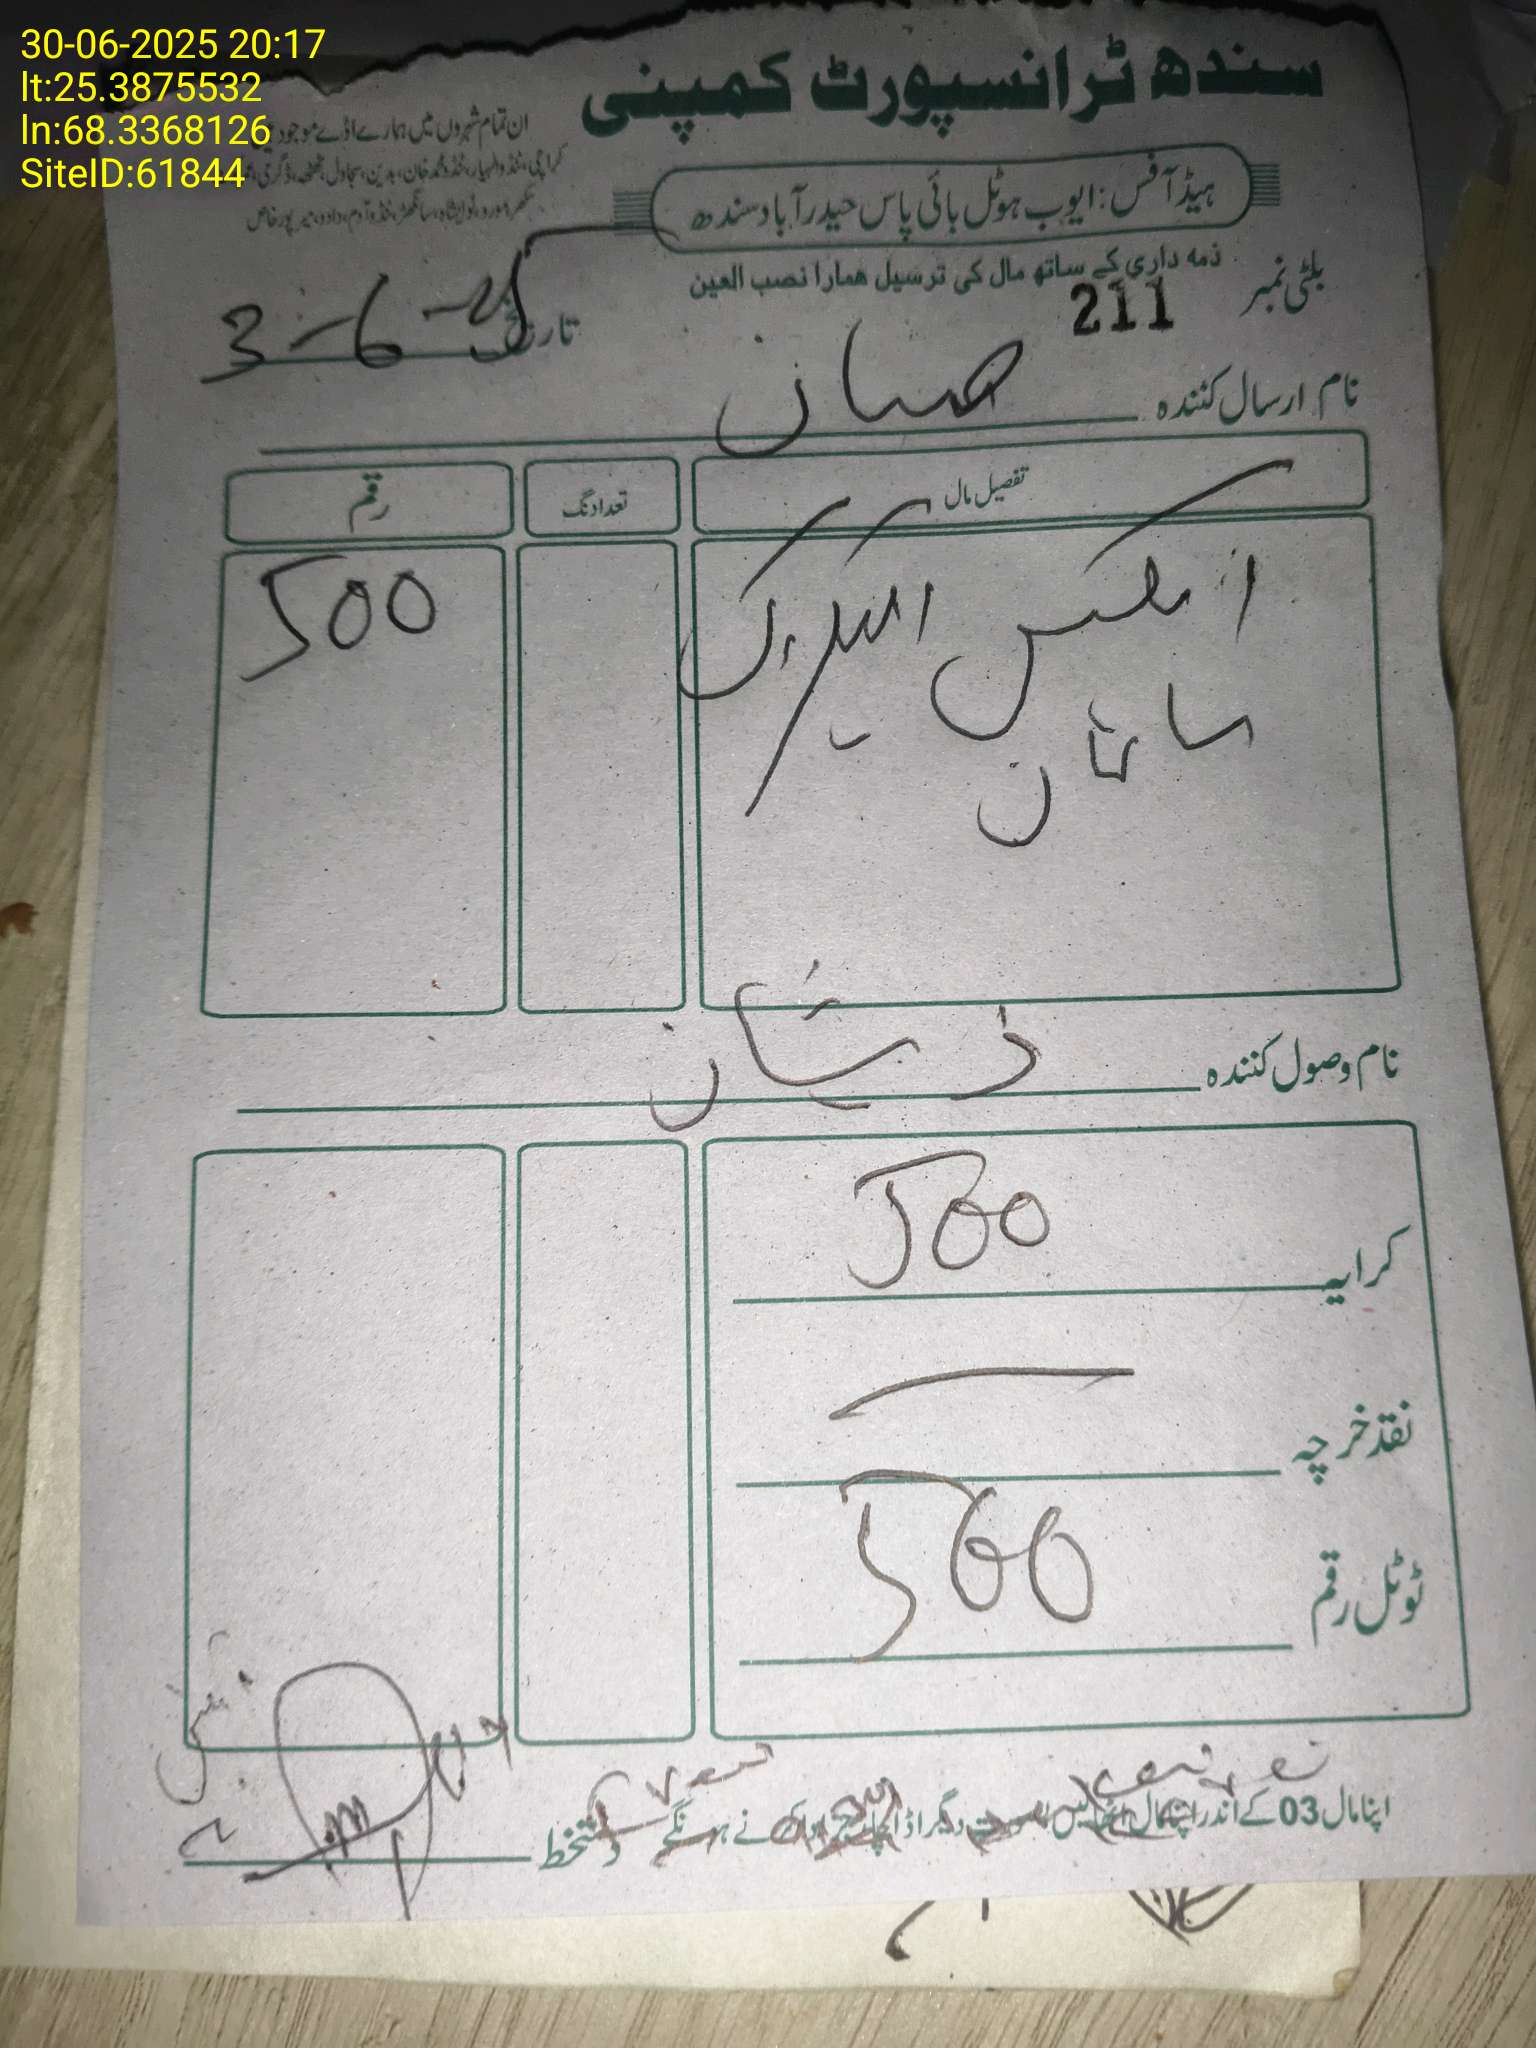 30-06-2025 20:17
lt:25.3875532
ln:68.3368126
SiteID:61844
سندھ ٹرانسپورٹ کمپنی
ان تمام شہروں میں ہمارے اڈے موجود
کراچی، ٹنڈوالہیار، ٹنڈو محمد خان، بدین، سجاول، ٹھٹھہ، ڈگری،
سکھر، مورو، نوابشاہ، سانگھڑ، ٹنڈوآدم، دادو، میرپورخاص
ہیڈ آفس: ایوب ہوٹل بائی پاس حیدرآباد سندھ
ذمہ داری کے ساتھ مال کی ترسیل ہمارا نصب العین
بلٹی نمبر 211
تاریخ 3-6-25
نام ارسال کنندہ
تفصیل مال تعداد نگ رقم
الیکٹرک 500
سامان
نام وصول کنندہ ذیشان
کرایہ 500
نقد خرچہ —
ٹوٹل رقم 500
اپنا مال 03 کے اندر اپنا مال دیگر اڈا نے ہونگے
دستخط